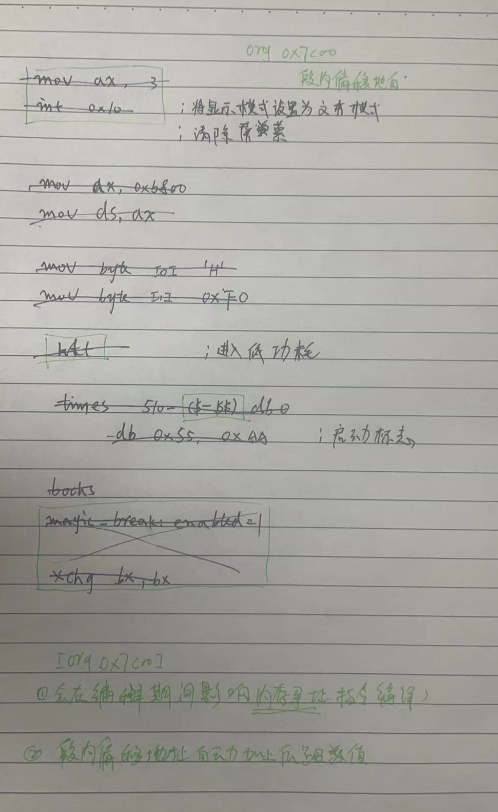 org 0x7c00
段内偏移地百
mov ax, 3
int 0x10 ;将显示模式设置为文本模式
;清除屏幕
mov ax, 0xb800
mov ds, ax
mov byte [0] 'H'
mov byte [1] 0xF0
hlt ;进入低功耗
times 510-($-$$) db 0
db 0x55, 0xAA ;启动标志
bochs
magic_break: enabled=1
xchg bx, bx
[org 0x7c00]
①会在编译期间影响内存寻址指令编译)
②段内偏移地址自动加上后